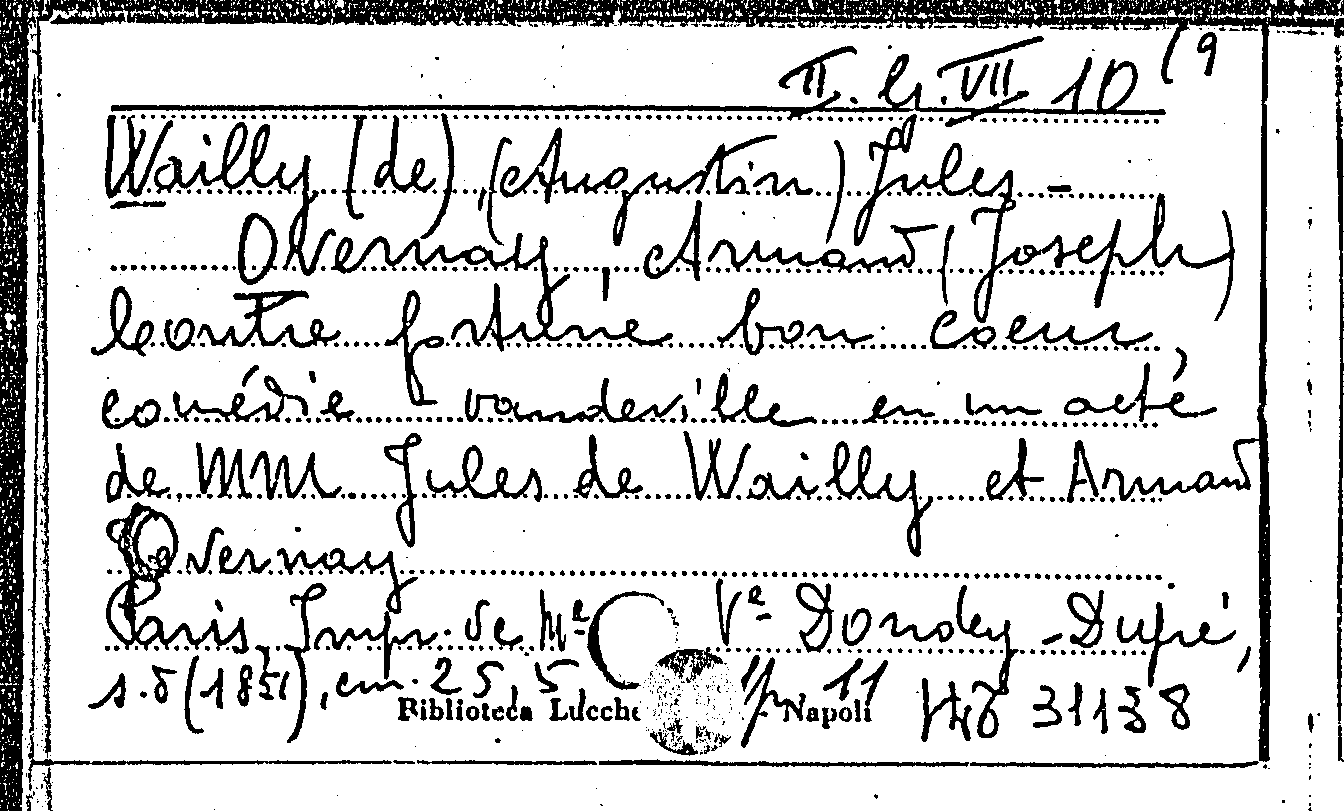 II. G. VII 10 (9
Wailly (de), (Augustin) Jules -
Overnay, Armand (Joseph)
Contre fortune bon coeur,
comédie - vaudeville en un acte
de MM Jules de Wailly et Armand
Overnay
Paris, Impr. de Me Ve Dondey-Dupré,
s.d (1851), cm. 25,5, p. 11 31138
Biblioteca Lucche - Napoli